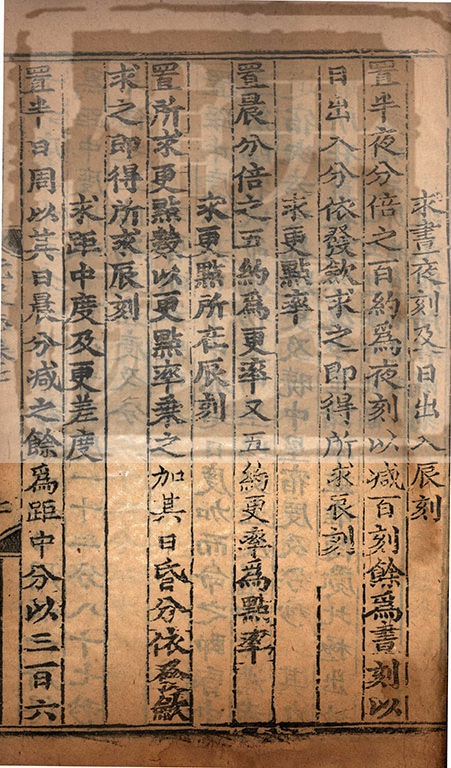 求晝夜刻及日出入辰刻
置半夜分倍之百約爲夜刻以减百刻餘爲晝刻以
日出入分依發斂求之即得所求辰刻
求更點率
置晨分倍之五約爲更率又五約更率爲點率
求更點所在辰刻
置所求更點數以更點率乘之加其日昏分依發斂
求之即得所求辰刻
求距中度及更差度
置半日周以其日晨分减之餘爲距中分以三百六